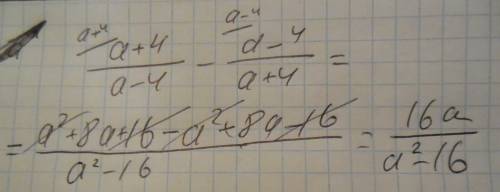 a+4 a-4
(a+4)/(a-4) - (a-4)/(a+4) =
= (a²+8a+16-a²+8a-16)/(a²-16) = 16a/(a²-16)